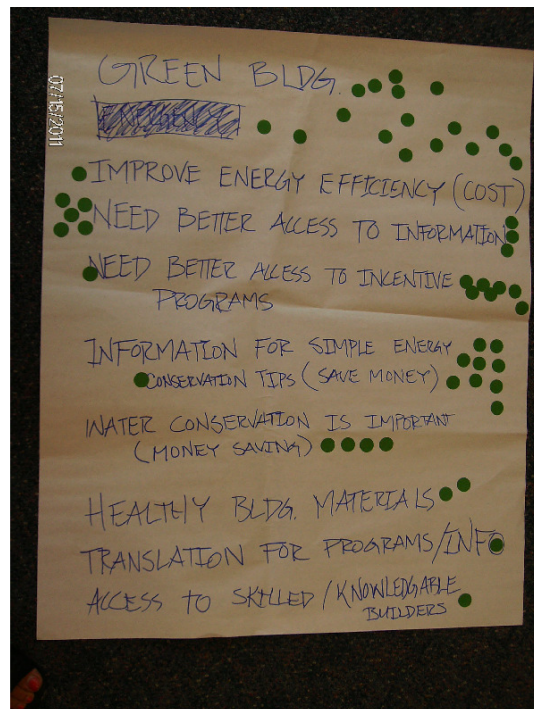 GREEN BLDG.
07/15/2011
IMPROVE ENERGY EFFICIENCY (COST)
NEED BETTER ACCESS TO INFORMATION
NEED BETTER ACCESS TO INCENTIVE
PROGRAMS
INFORMATION FOR SIMPLE ENERGY
CONSERVATION TIPS (SAVE MONEY)
WATER CONSERVATION IS IMPORTANT
(MONEY SAVING)
HEALTHY BLDG. MATERIALS
TRANSLATION FOR PROGRAMS/INFO
ACCESS TO SKILLED/KNOWLEDGABLE
BUILDERS